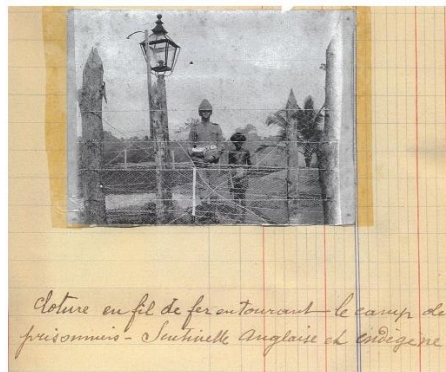 Cloture en fil de fer entourant le camp de
prisonniers - Sentinelle Anglaise et indigène